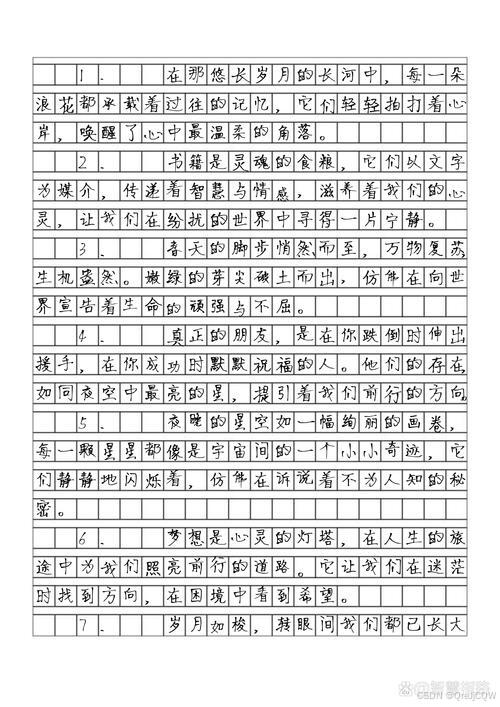 1. 在那悠长岁月的长河中，每一朵
浪花都承载着过往的记忆，它们轻轻拍打着心
岸，唤醒了心中最温柔的角落。
2. 书籍是灵魂的食粮，它们以文字
为媒介，传递着智慧与情感，滋养着我们的心
灵，让我们在纷扰的世界中寻得一片宁静。
3. 春天的脚步悄然而至，万物复苏
生机盎然。嫩绿的芽尖破土而出，仿佛在向世
界宣告着生命的顽强与不屈。
4. 真正的朋友，是在你跌倒时伸出
援手，在你成功时默默祝福的人。他们的存在，
如同夜空中最亮的星，提引着我们前行的方向。
5. 夜晚的星空如一幅绚丽的画卷，
每一颗星星都像是宇宙间的一个小小奇迹，它
们静静地闪烁着，仿佛在诉说着不为人知的秘
密。
6. 梦想是心灵的灯塔，在人生的旅
途中为我们照亮前行的道路。它让我们在迷茫
时找到方向，在困境中看到希望。
7. 岁月如梭，转眼间我们都已长大
CSDN @QrejjCQW